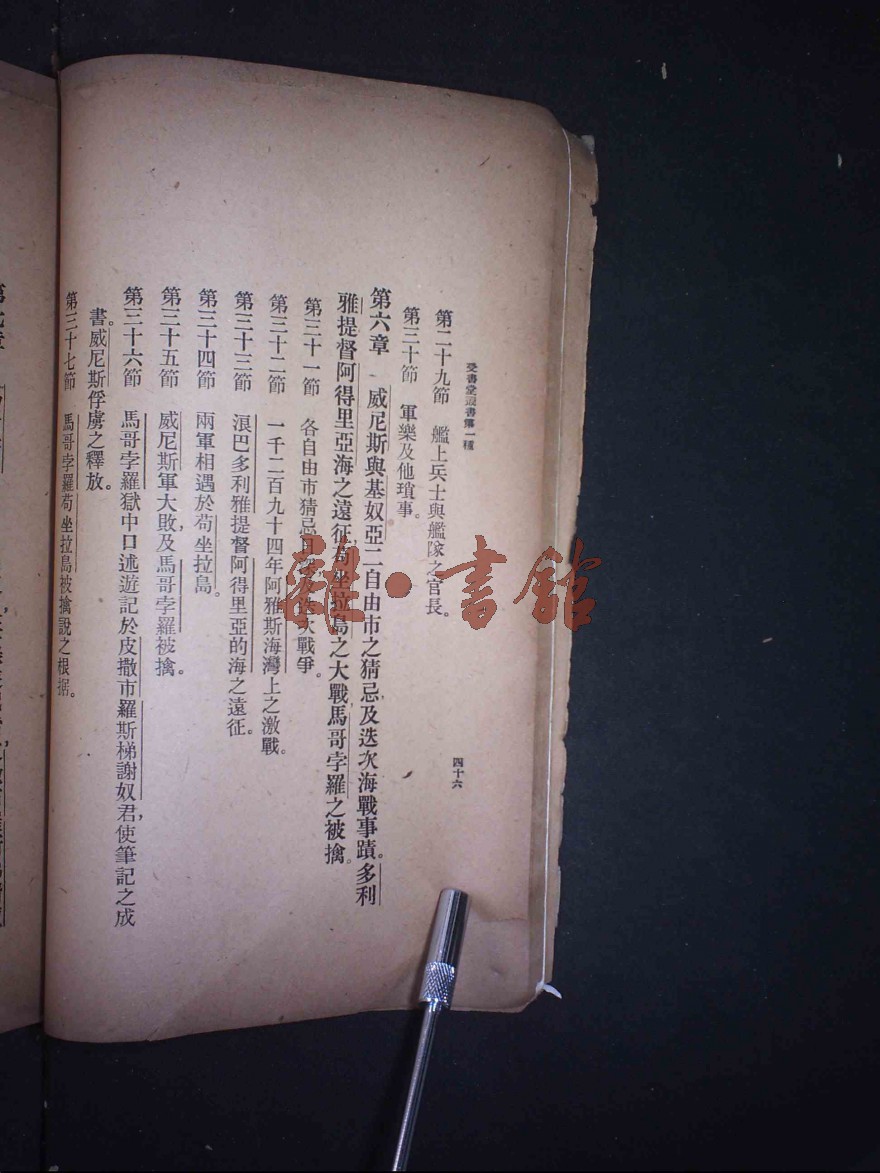 受書堂叢書第一種
四十六
第二十九節 艦上兵士與艦隊之官長。
第三十節 軍樂及他瑣事。
第六章 威尼斯與基奴亞二自由市之猜忌,及迭次海戰事蹟。多利
雅提督阿得里亞海之遠征,苟坐拉島之大戰,馬哥孛羅之被擒。
第三十一節 各自由市猜忌及迭次戰爭。
第三十二節 一千二百九十四年阿雅斯海灣上之激戰。
第三十三節 浪巴多利雅提督阿得里亞的海之遠征。
第三十四節 兩軍相遇於苟坐拉島。
第三十五節 威尼斯軍大敗,及馬哥孛羅被擒。
第三十六節 馬哥孛羅獄中口述遊記於皮撒市羅斯梯謝奴君,使筆記之成
書。威尼斯俘虜之釋放。
第三十七節 馬哥孛羅苟坐拉島被擒說之根据。
雜·書館